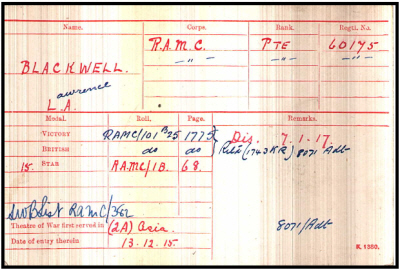 Name. Corps. Rank. Regtl. No.
R.A.M.C. PTE 60175
BLACKWELL. -"- -"- -"-
awrence
L.A.
Medal. Roll. Page. Remarks.
VICTORY RAMC/101 B25 1775 Dis. 7.1.17.
BRITISH do do (1743 KR) 8071/Adt
15 STAR RAMC/1B. 68.
SWB List RAMC/362
Theatre of War first served in (2A) Asia. 8071/Adt
Date of entry therein 13.12.15. K. 1380.